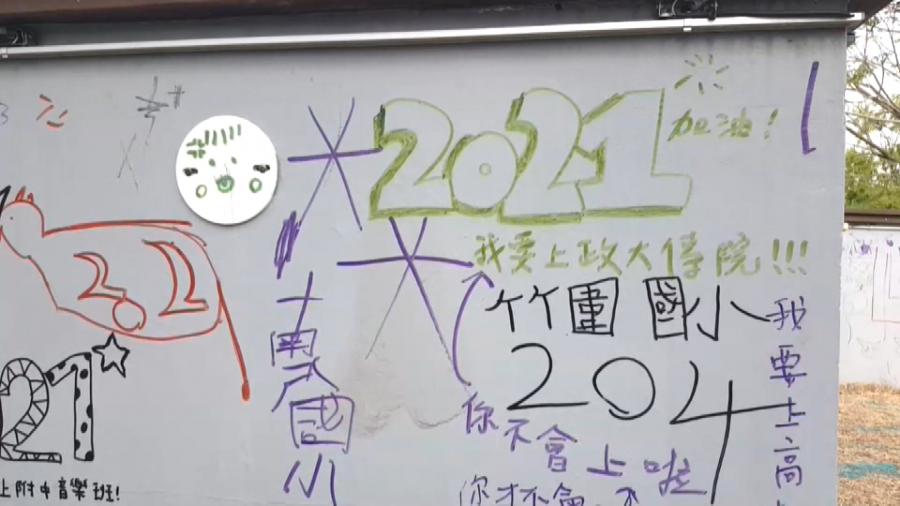 2021
加油!
我要上政大傳院!!!
竹圍國小
204
2021
21
上附中音樂班!
國小
你不會上啦
你才不會
我要上高